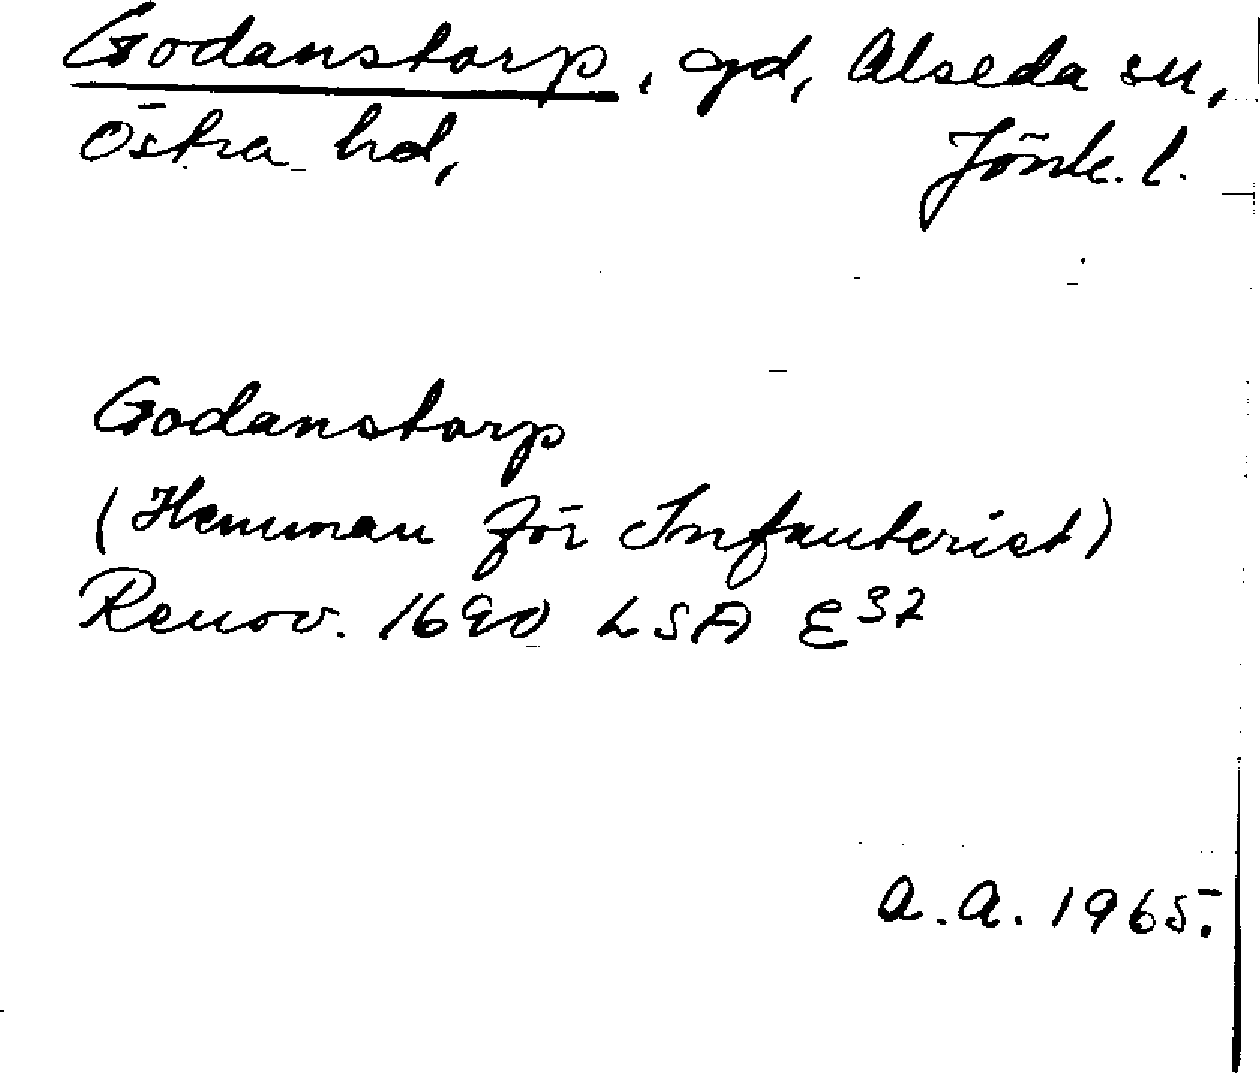 Godanstorp, gd, Alseda sn,
Östra hd, Jönk. l.
Godanstorp
(Hemman för Infanterist)
Renov. 1690 LSA E 32
A.A. 1965.